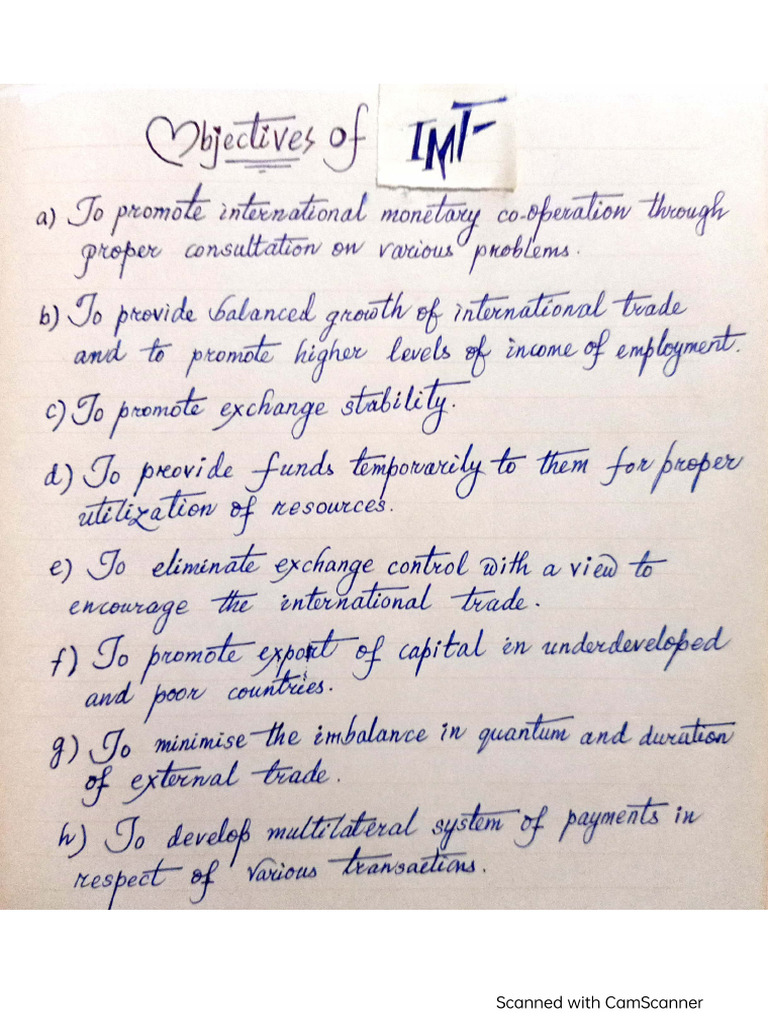 Objectives of IMF
a) To promote international monetary co-operation through
proper consultation on various problems.
b) To provide balanced growth of international trade
and to promote higher levels of income of employment.
c) To promote exchange stability.
d) To provide funds temporarily to them for proper
utilization of resources.
e) To eliminate exchange control with a view to
encourage the international trade.
f) To promote export of capital in underdeveloped
and poor countries.
g) To minimise the imbalance in quantum and duration
of external trade.
h) To develop multilateral system of payments in
respect of various transactions.
Scanned with CamScanner